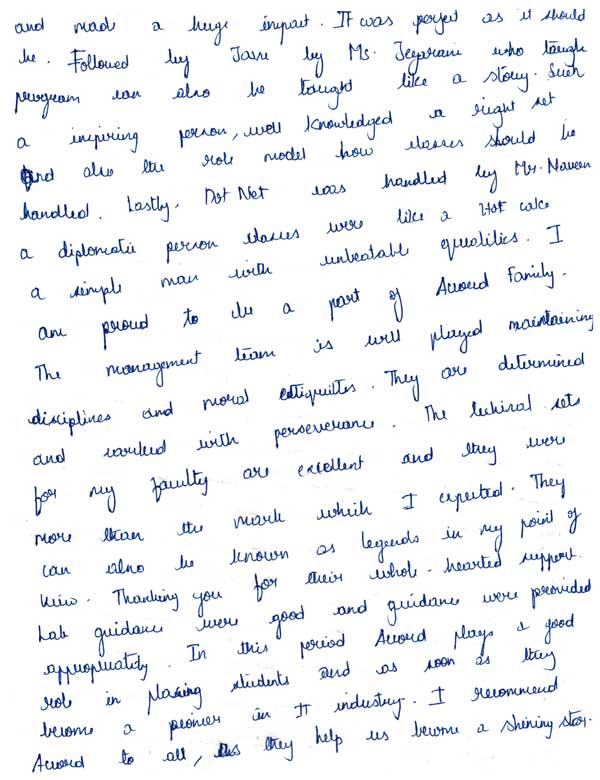 and made a huge impact. It was perfect as it should
be. Followed by Java by Ms. Jeyarani who taugh
program can also be taught like a story. Such
a inspiring person, well knowledged a right set
and also the role model how classes should be
handled. Lastly, Dot Net was handled by Mr. Naveen
a diplomatic person classes were like a Hot cake
a simple man with unbeatable qualities. I
am proud to be a part of Accord Family.
The management team is well played maintaining
disciplines and moral etiquittes. They are determined
and worked with perseverance. The techinal sets
for my faculty are excellent and they were
more than the mark which I expected. They
can also be known as legends in my point of
view. Thanking you for their whole-hearted support.
Lab guidance were good and guidance were provided
appropriately. In this period Accord plays a good
role in placing students and as soon as they
become a pionier in IT industry. I recommend
Accord to all, as they help us become a shining star.